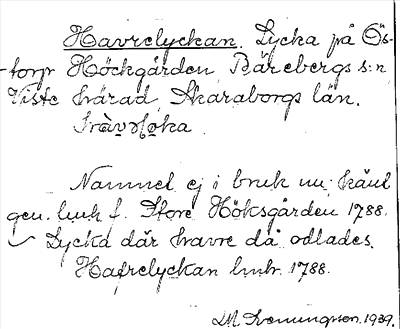 Havrelyckan. Lycka på Ös-
torp Höckgården, Bärebergs s:n
Viste härad, Skaraborgs län.

Namnet ej i bruk nu; känt
gen. lmh f. Store Höksgården 1788.
Lycka där havre då odlades.
Hafrelyckan lmhr. 1788.
LM. Svenungsson. 1939.